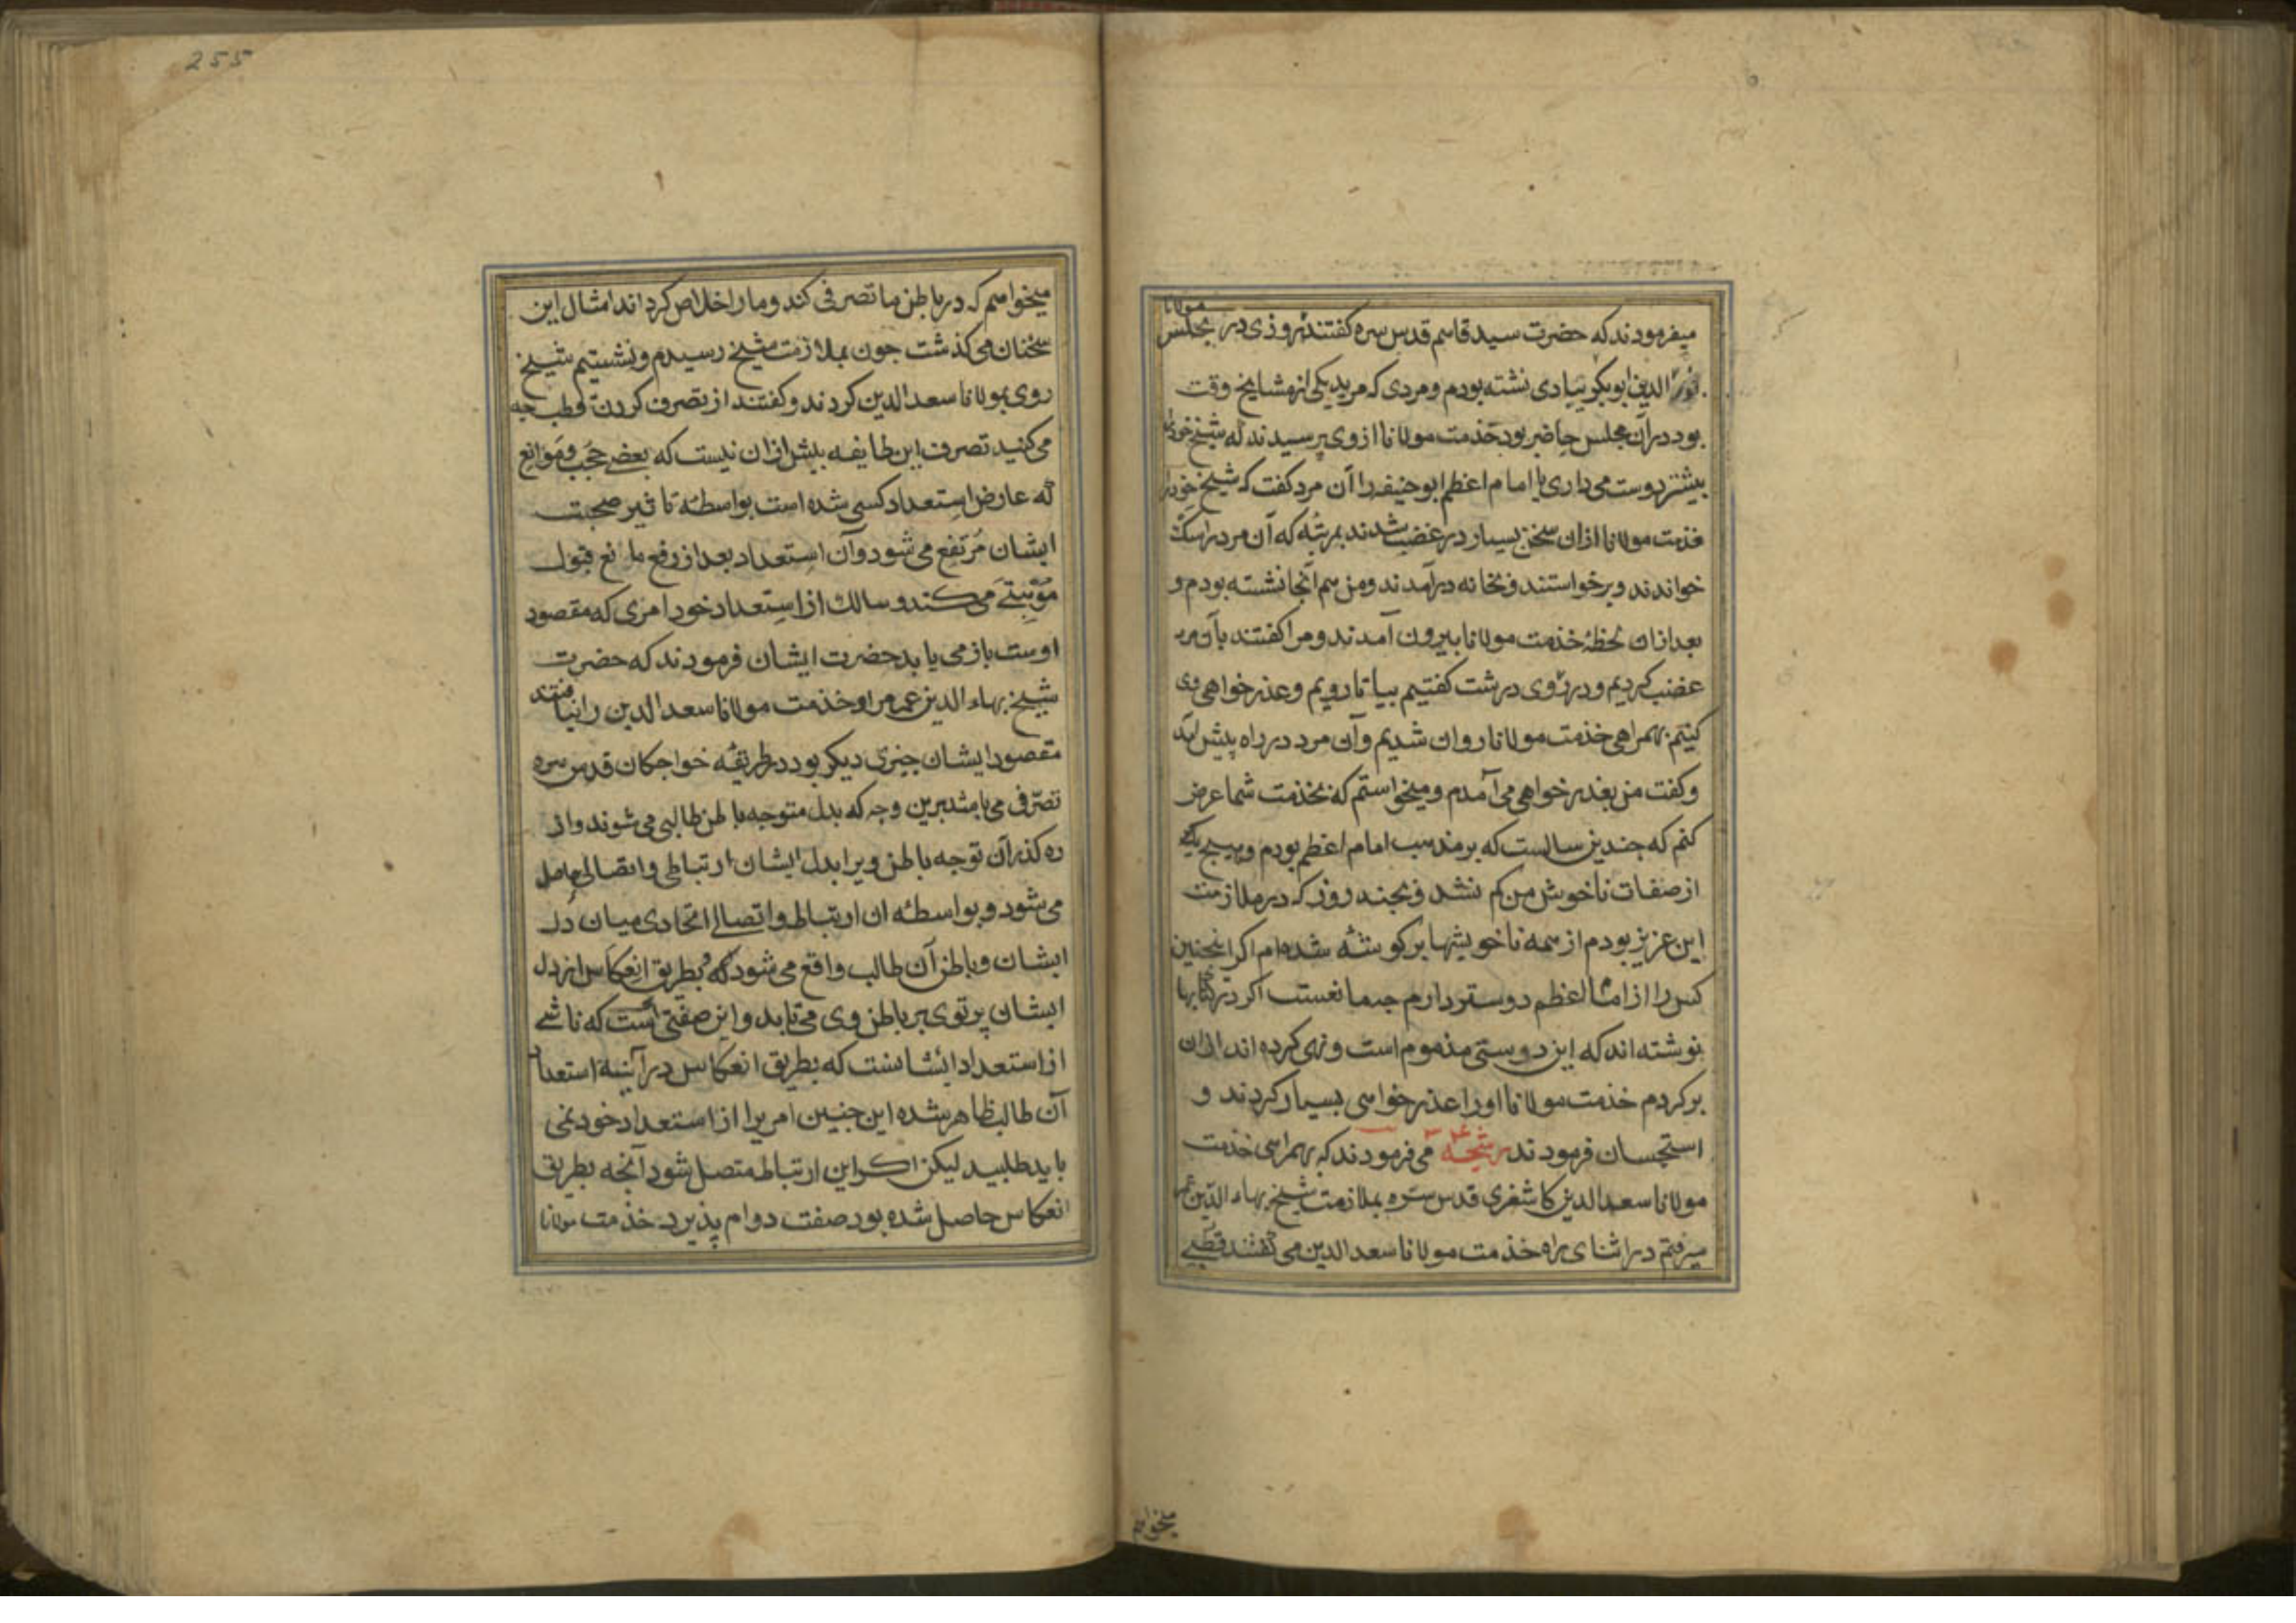 255
مولانا
میفرمودند که حضرت سید قاسم قدس سره کفتند روزی در مجلس
الدین ابوبکر تیبادی نشته بودم و مردی که مرید یکی از مشایخ وقت
بود در آن مجلس حاضر بود خذمت مولانا از وی پرسیدند که شیخ خود را
بیشتر دوست می داری یا امام اعظم ابو حنیفه را آن مرد کفت که شیخ خود را
خذمت مولانا ازان سخن بسیار در غضب شدند بمرتبه که آن مرد را سک
خواندند و برخواستند و بخانه درآمدند و من هم آنجا نشته بودم و
بعد ازان لحظهٔ خذمت مولانا بیرون آمدند و مرا کفتند بآن مرد
غضب کردیم و در روی درشت کفتیم بیا تا رویم و عذر خواهی وی
کنیم بهمراهی خذمت مولانا روان شدیم و آن مرد در راه پیش آمد
و کفت من بعذر خواهی می آمدم و میخواستم که بخذمت شما عرض
کنم که جندین سالست که بر مذهب امام اعظم بودم و هیچ یکی
از صفات ناخوش من کم نشد و بجند روز که در ملازمت
این عزیز بودم از همه ناخویشها بر کوشه شده ام اکر اینجنین
کس را از امام اعظم دوستر دارم جه مانعست اکر در کتابها
نوشته اند که این دوستی مذموم است و نهی کرده اند ازان
بر کردم خذمت مولانا او را عذر خواهی بسیار کردند و
استحسان فرمودند رشحه می فرمودند که بهمراهی خذمت
مولانا سعد الدین کاشغری قدس سره بملازمت شیخ بهاء الدین عمر
میرفتم در اثنای راه خذمت مولانا سعد الدین می کفتند قطبی
میخواهم
میخواهم که در باطن ما تصرفی کند و ما را خلاص کرداند امثال این
سخنان می کذشت جون بملازمت شیخ رسیدم و نشستیم شیخ
روی بمولانا سعد الدین کردند و کفتند از تصرف کردن قطب جه
می کنید تصرف این طایفه بیش ازان نیست که بعضی حجب و موانع
که عارض استعداد کسی شده است بواسطهٔ تاثیر صحبت
ایشان مرتفع می شود و آن استعداد بعد از رفع مانع قبول
می کند و سالک از استعداد خود امری که مقصود
اوست باز می یابد حضرت ایشان فرمودند که حضرت
شیخ بهاء الدین عمر مرا و خذمت مولانا سعد الدین را نیافتند
مقصود ایشان جیزی دیکر بود در طریقهٔ خواجکان قدس سره
تصرفی می باشد برین وجه که بدل متوجه باطن طالبی می شوند و از
ره کذر آن توجه باطن ویرا بدل ایشان ارتباطی و اتصالی حاصل
می شود و بواسطهٔ ان ارتباط و اتصال اتحادی میان دل
ایشان و باطن آن طالب واقع می شود که بطریق انعکاس از دل
ایشان پرتوی بر باطن وی می تابد و این صفتی است که ناشی
از استعداد ایشانست که بطریق انعکاس در آینهٔ استعداد
آن طالب ظاهر شده این جنین امریرا از استعداد خود نمی
باید طلبید لیکن اکر این ارتباط متصل شود آنجه بطریق
انعکاس حاصل شده بود صفت دوام پذیرد خذمت مولانا